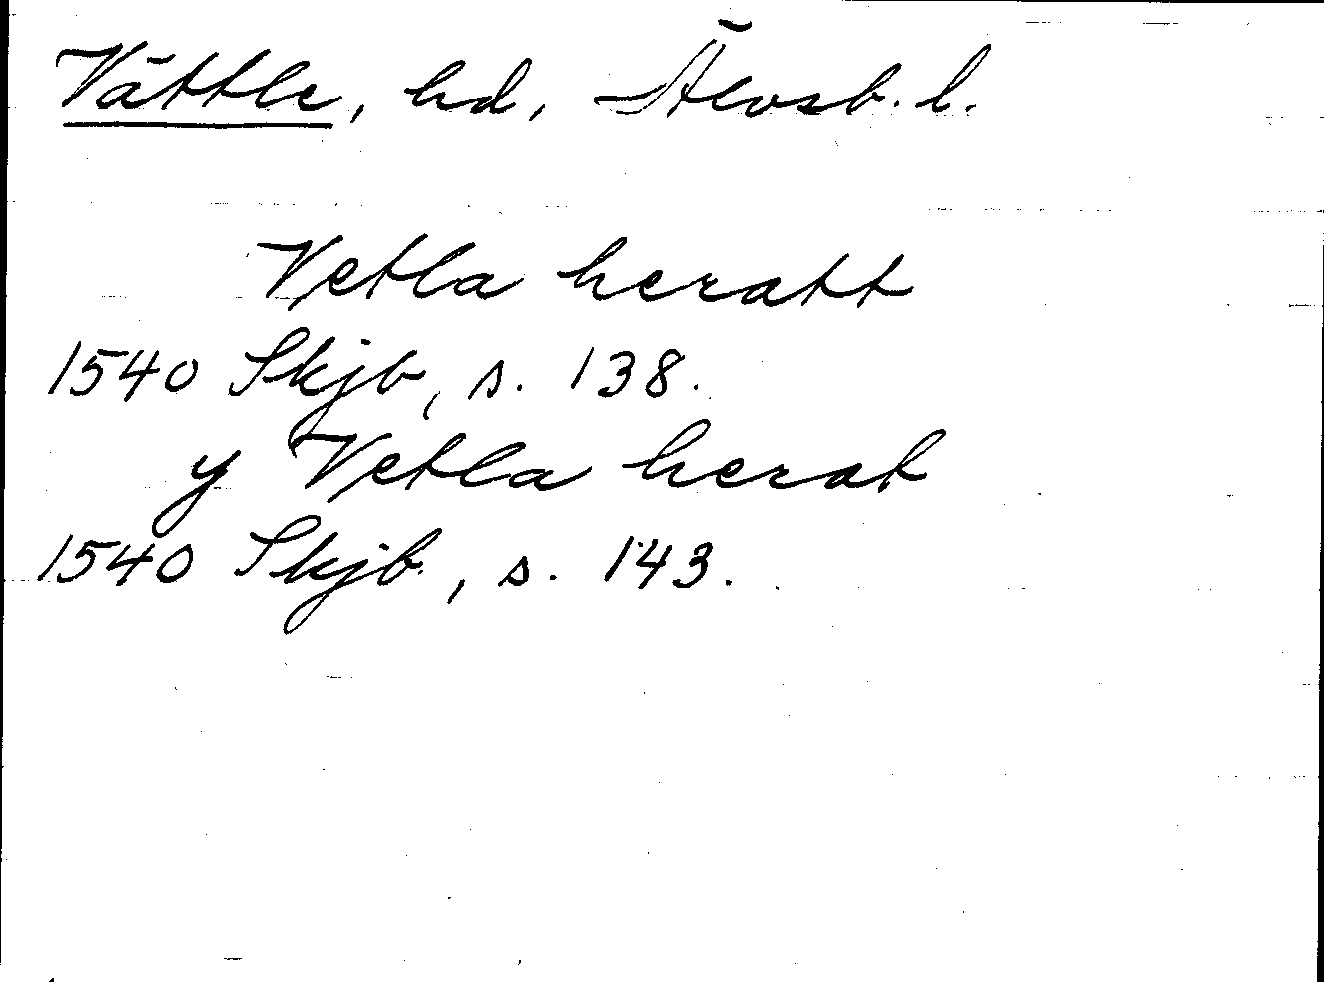 Vättle, hd, Älvsb. l.
Vetla heratt
1540 Skjb, s. 138.
y Vetla herat
1540 Skjb, s. 143.